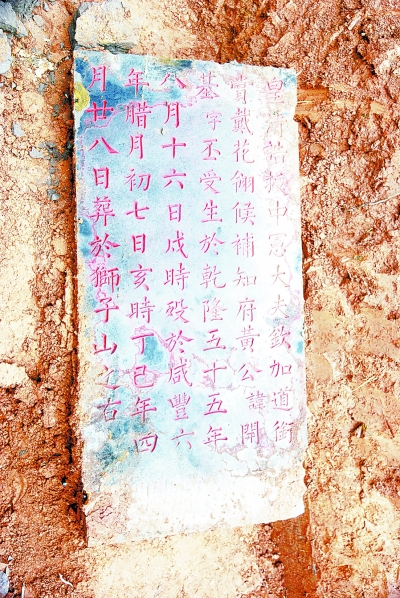 皇清誥授中憲大夫欽加道銜
賞戴花翎候補知府黃公諱開
基字玉受生於乾隆五十五年
八月十六日戌時歿於咸豐六
年腊月初七日亥時丁巳年四
月廿八日葬於獅子山之右